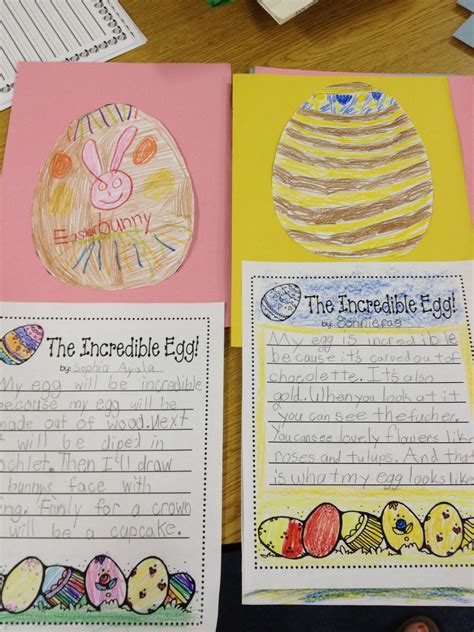 Easter bunny
The Incredible Egg!
by: Sophia Ayala
My egg will be incredible
because my egg will be
made out of wood. Next
it will be diced in
choclet. Then I'll draw
bunnys face with
Finly for a crown
will be a cupcake.
The Incredible Egg!
by:
My egg is incredible
be cause it's carved out of
chocolette. It's also
gold. When you look at it
you can see the fucher.
You can see lovely flavers like
roses and tulups. And that
is what my egg looks like